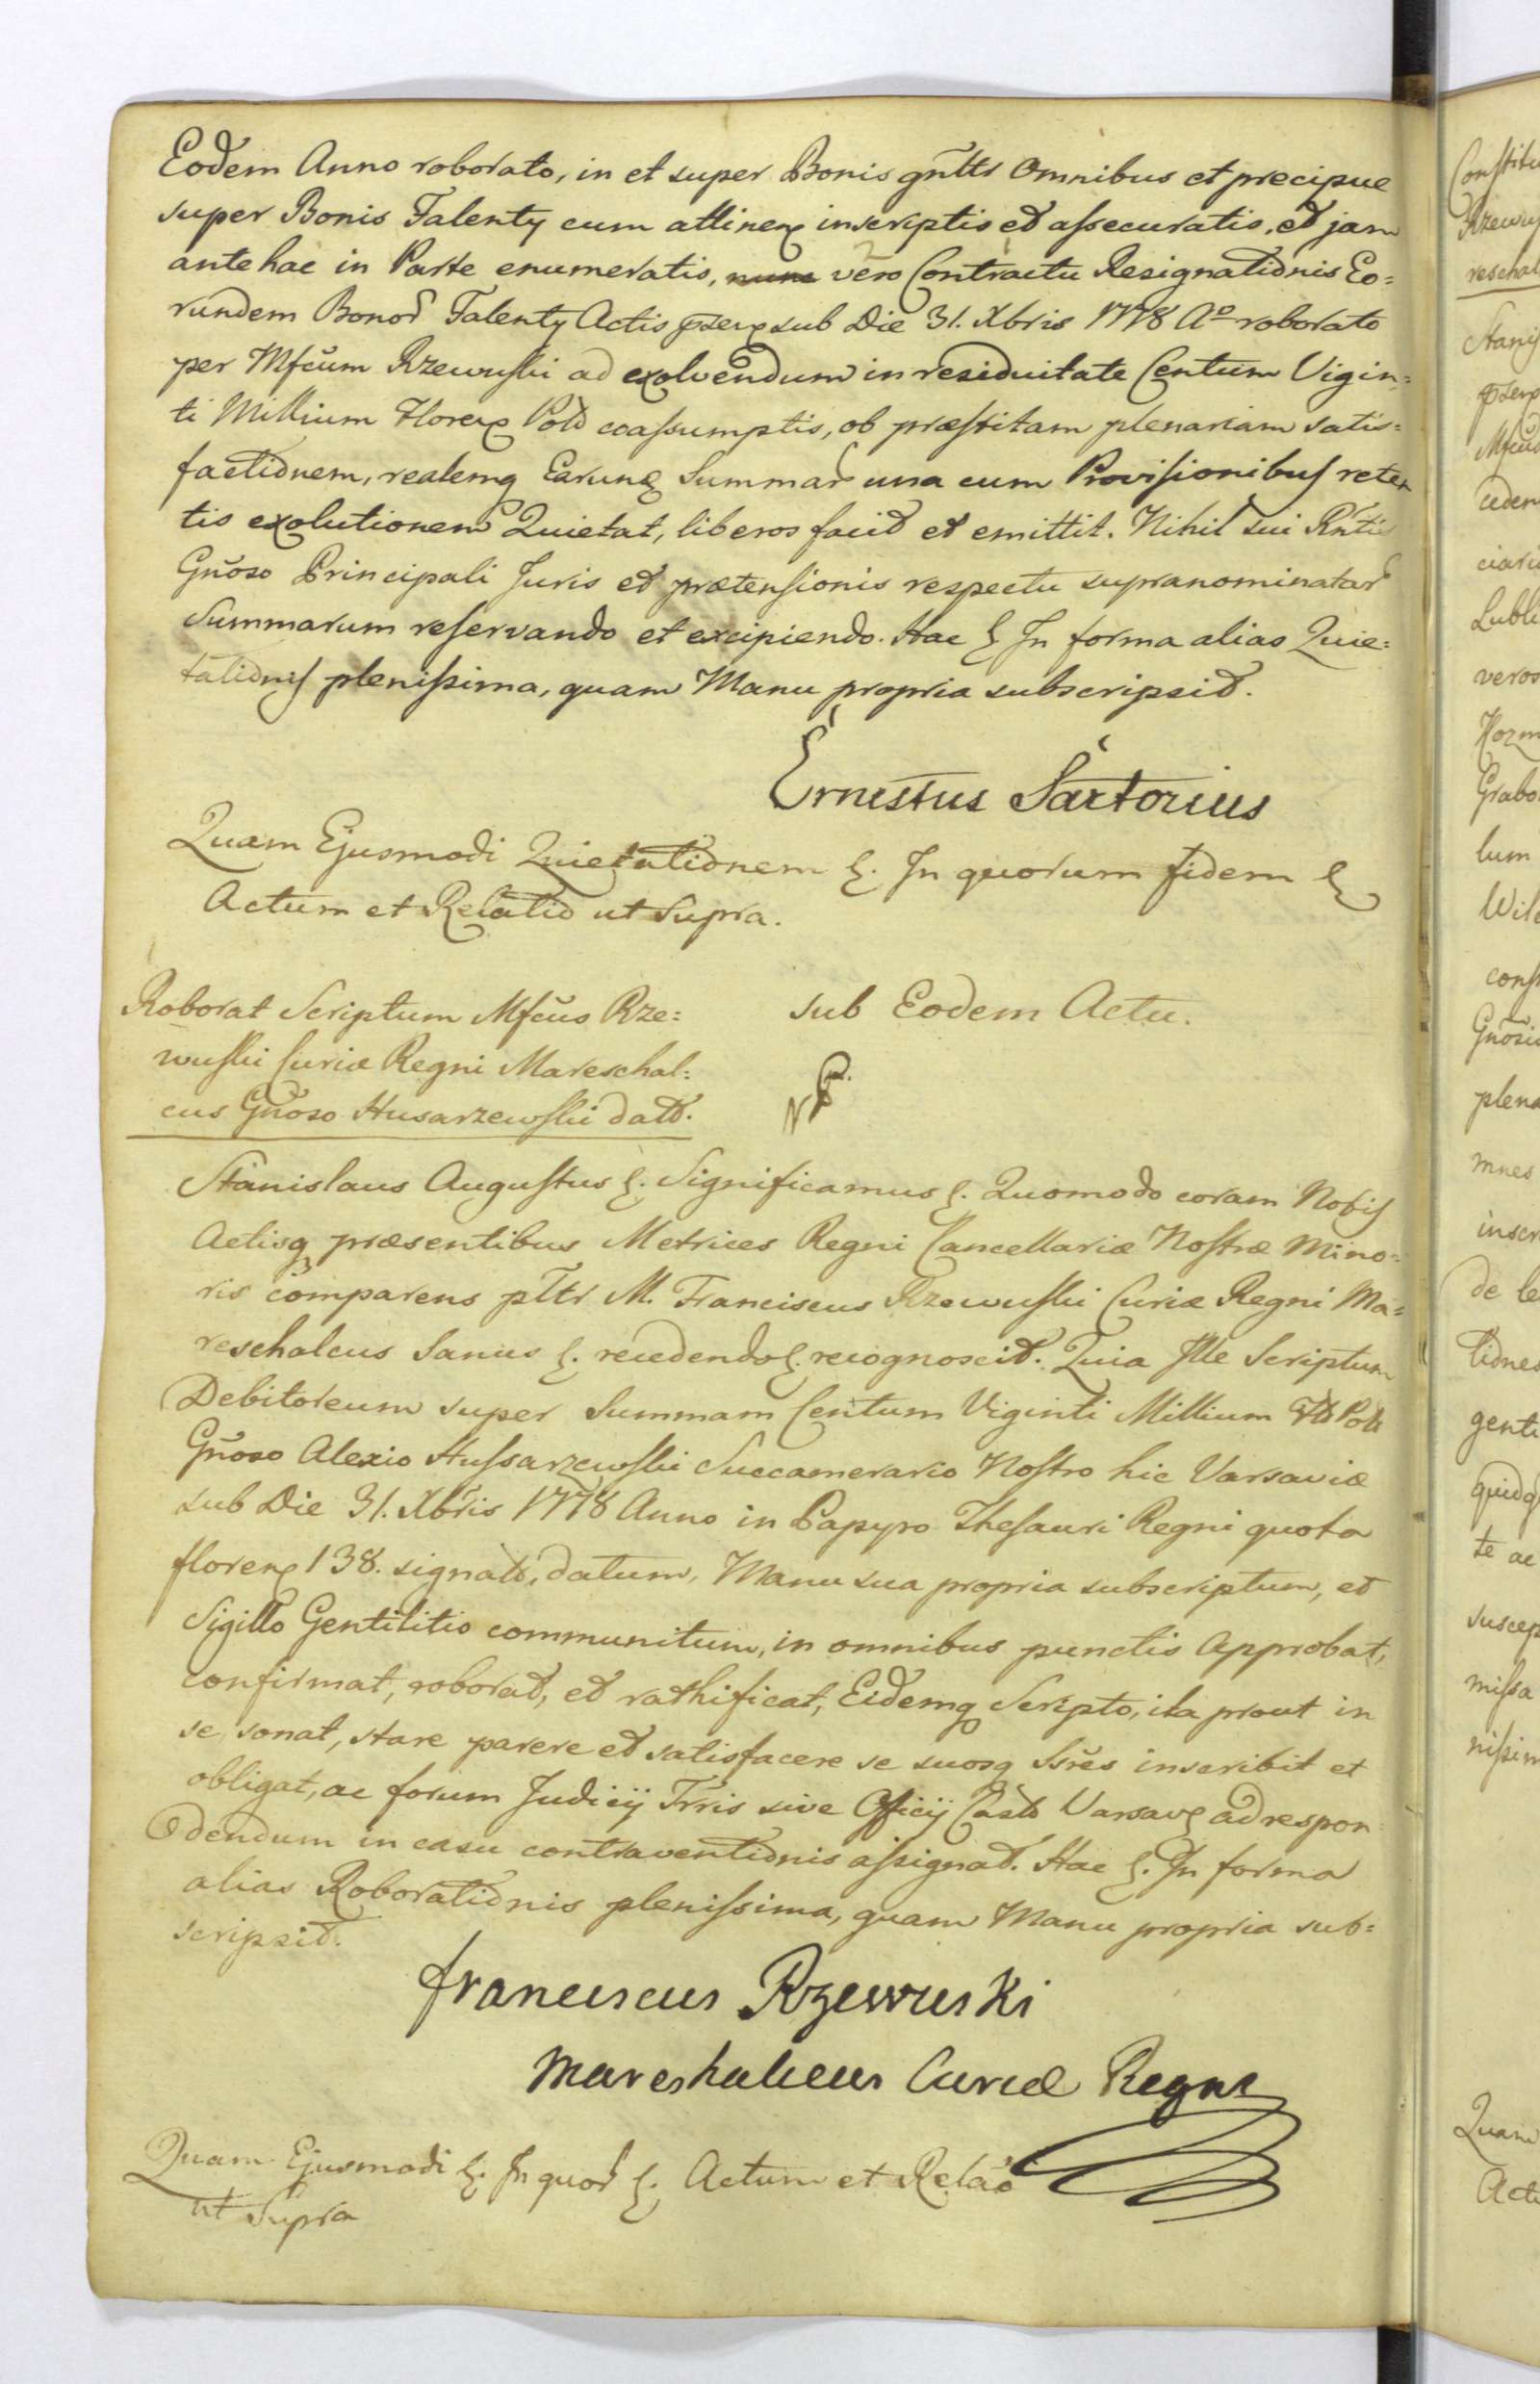 Eodem Anno roborato, in et super Bonis gñltr Omnibus et precipue
super Bonis Falenty cum attineñ inscriptis et assecuratis, et jam
antehac in Parte enumeratis, nunc vero Contractu Resignationis Eo=
rundem Bonor Falenty Actis pseñ sub Die 31. Xbris 1778 Aº roborato
per Mfcum Rzewuski ad exolvendum in residuitate Centum Vigin=
ti Millium Floreñ Pold coassumptis, ob præstitam plenariam satis=
factionem, realemq Earunđ Summar una cum Provisionibus reten
tis exolutionem Quietat, liberos facit et emittit. Nihil sui Rñti
Gñoso Principali Juris et prætensionis respectu supranominatar
Summarum reservando et excipiendo. Hac &. In forma alias Quie=
tationis plenissima, quam Manu propria subscripsit.
Ernestus Sartorius
Quam Ejusmodi Quietationem &. In quorum fidem &
Actum et Relatio ut Supra.
Roborat Scriptum Mfcus Rze=
wuski Curiæ Regni Mareschal=
cus Gñoso Husarzewski datt.
sub Eodem Actu.
Stanislaus Augustus &. Significamus &. Quomodo coram Nobis
Actisq præsentibus Metrices Regni Cancellariæ Nostræ Mino=
ris comparens pltr M. Franciscus Rzewuski Curiæ Regni Ma=
reschalcus Sanus &. recedendo &. recognoscit. Quia Ille Scriptum
Debitoreum super Summam Centum Viginti Millium Fld Pold
Gñoso Alexio Hussarzewski Succamerario Nostro hic Varsaviæ
sub Die 31. Xbris 1778 Anno in Papyro Thesauri Regni quota
floreñ 138. signato, datum, Manu sua propria subscriptum, et
Sigillo Gentilitio communitum, in omnibus punctis Approbat,
confirmat, roborat, et rathificat, Eidemq Scripto, ita prout in
se sonat, stare parere et satisfacere se suosq Ssr̃es inscribit et
obligat, ac forum Judicij Trris sive Officij Castr Varsav ad respon=
dendum in casu contraventionis assignat. Hac &. In forma
alias Roborationis plenissima, quam Manu propria sub=
scripsit.
franciscus Rzewuski
Mareshalcus Curiæ Regni
Quam Ejusmodi &. In quor &. Actum et Relao
ut Supra